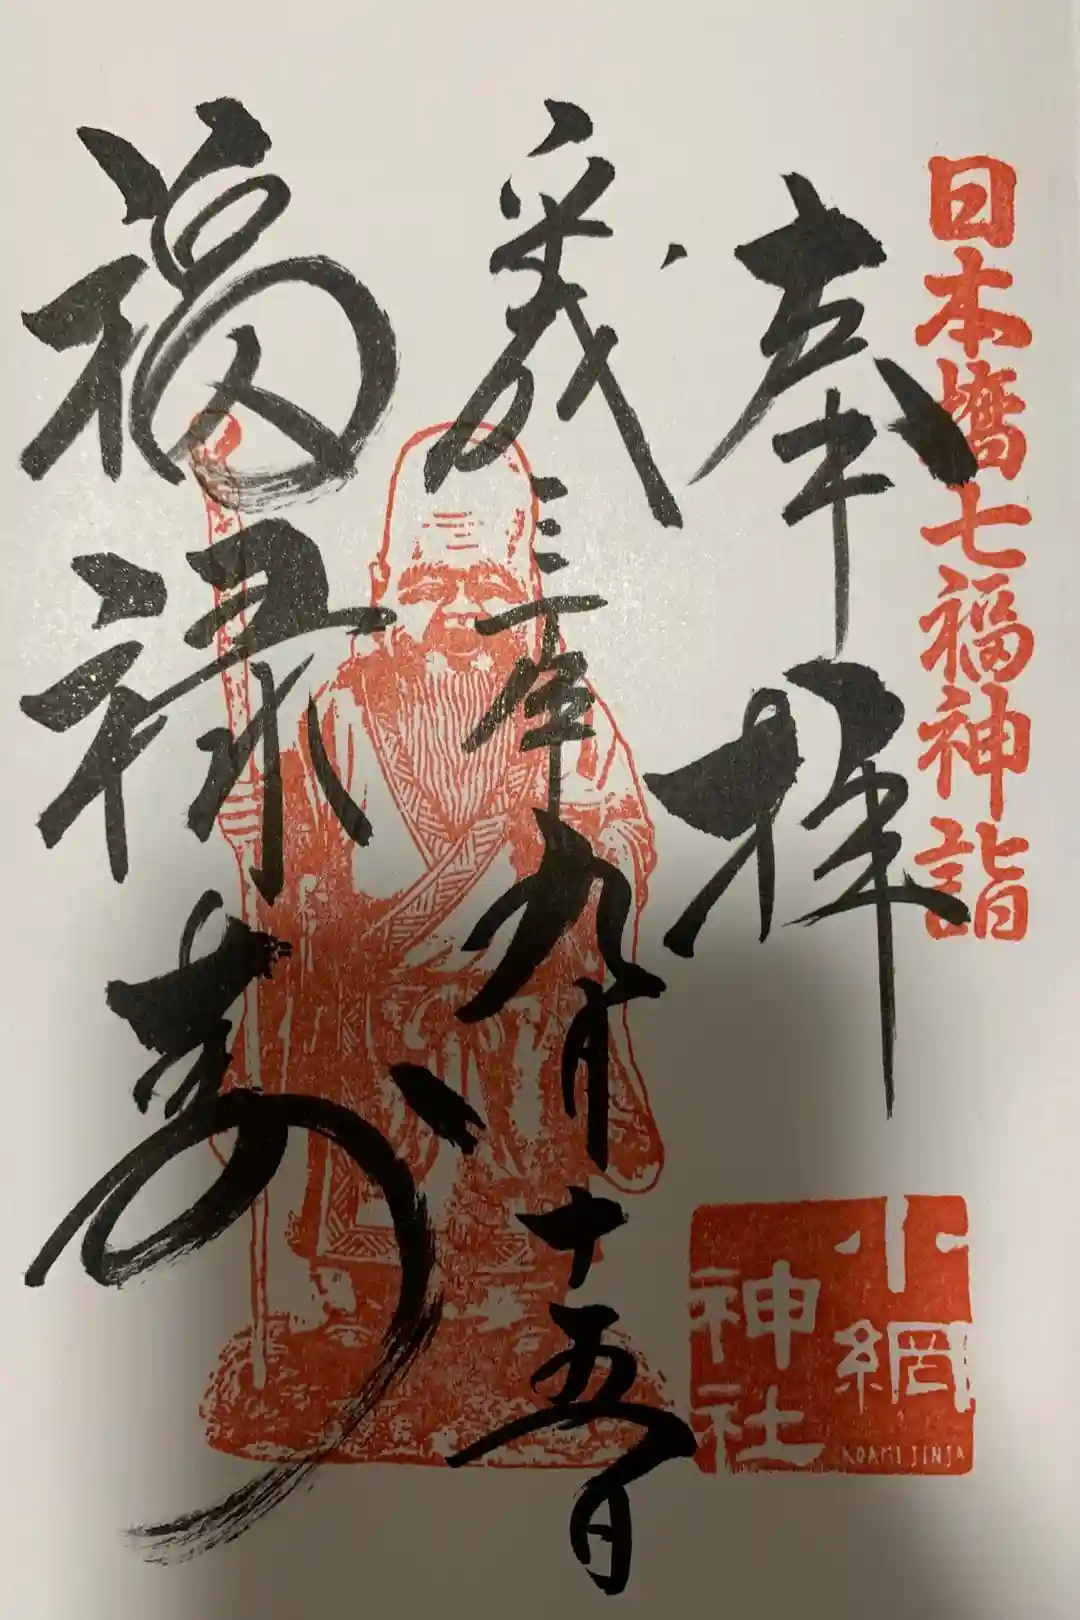 日本橋七福神詣
奉拝
平成三十年九月十五日
福禄寿
小網
神社
KOAMI JINJA